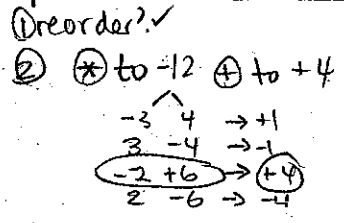 ① reorder? ✓
② ⊛ to -12 ⊕ to +4
-3 4 → +1
3 -4 → -1
-2 +6 → +4
2 -6 → -4